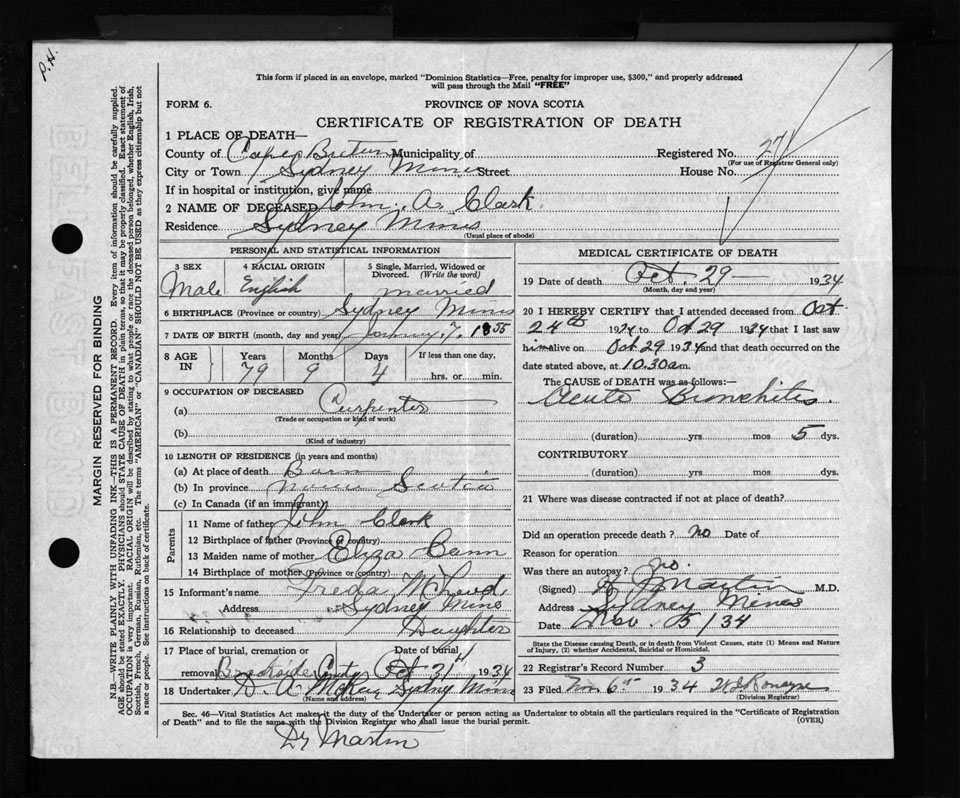 P.H.
This form if placed in an envelope, marked "Dominion Statistics—Free, penalty for improper use, $300," and properly addressed
will pass through the Mail "FREE"
FORM 6.
PROVINCE OF NOVA SCOTIA
CERTIFICATE OF REGISTRATION OF DEATH
1 PLACE OF DEATH—
County of Cape Breton Municipality of Registered No. 271
(For use of Registrar General only)
City or Town Sydney Mines Street House No.
If in hospital or institution, give name
2 NAME OF DECEASED John A. Clark
Residence Sydney Mines
(Usual place of abode)
PERSONAL AND STATISTICAL INFORMATION
3 SEX 4 RACIAL ORIGIN 5 Single, Married, Widowed or
Divorced. (Write the word)
Male English married
6 BIRTHPLACE (Province or country) Sydney Mines
7 DATE OF BIRTH (month, day and year) January 7. 1855
8 AGE IN Years Months Days If less than one day,
79 9 4 hrs. or min.
9 OCCUPATION OF DECEASED
(a) Carpenter
(Trade or occupation or kind of work)
(b)
(Kind of industry)
10 LENGTH OF RESIDENCE (in years and months)
(a) At place of death Born
(b) In province Nova Scotia
(c) In Canada (if an immigrant)
Parents
11 Name of father John Clark
12 Birthplace of father (Province or country)
13 Maiden name of mother Eliza Cann
14 Birthplace of mother (Province or country)
15 Informant's name Freda McLeod
Address Sydney Mines
16 Relationship to deceased Daughter
17 Place of burial, cremation or Date of burial
removal Brookside Cmty Oct 31 1934
18 Undertaker D. A. McKay Sydney Mines
(Name and address)
MEDICAL CERTIFICATE OF DEATH
19 Date of death Oct. 29 1934
(Month, day and year)
20 I HEREBY CERTIFY that I attended deceased from Oct
24th 1934 to Oct 29 1934 that I last saw
him alive on Oct 29 1934 and that death occurred on the
date stated above, at 10.30 a m.
The CAUSE OF DEATH was as follows:—
Acute Bronchitis
(duration) yrs mos 5 dys.
CONTRIBUTORY
(duration) yrs mos dys.
21 Where was disease contracted if not at place of death?
Did an operation precede death? no Date of
Reason for operation
Was there an autopsy? no.
(Signed) Martin M.D.
Address Sydney Mines
Date Nov. 5/34
State the Disease causing Death, or in death from Violent Causes, state (1) Means and Nature
of Injury, (2) whether Accidental, Suicidal or Homicidal.
22 Registrar's Record Number 3
23 Filed Nov 6th 1934
(Division Registrar)
Sec. 46—Vital Statistics Act makes it the duty of the Undertaker or person acting as Undertaker to obtain all the particulars required in the "Certificate of Registration
of Death" and to file the same with the Division Registrar who shall issue the burial permit. (OVER)
Dr Martin
MARGIN RESERVED FOR BINDING
N.B.—WRITE PLAINLY WITH UNFADING INK—THIS IS A PERMANENT RECORD. Every item of information should be carefully supplied.
AGE should be stated EXACTLY. PHYSICIANS should STATE CAUSE OF DEATH in plain terms, so that it may be properly classified. Exact statement of
OCCUPATION is very important. RACIAL ORIGIN will be described by stating to what people or race the deceased person belonged, whether English, Irish,
Scottish, French, German, Russian, Ruthenian, etc. The terms "AMERICAN" or "CANADIAN" SHOULD NOT BE USED as they express citizenship but not
a race or people. See instructions on back of certificate.